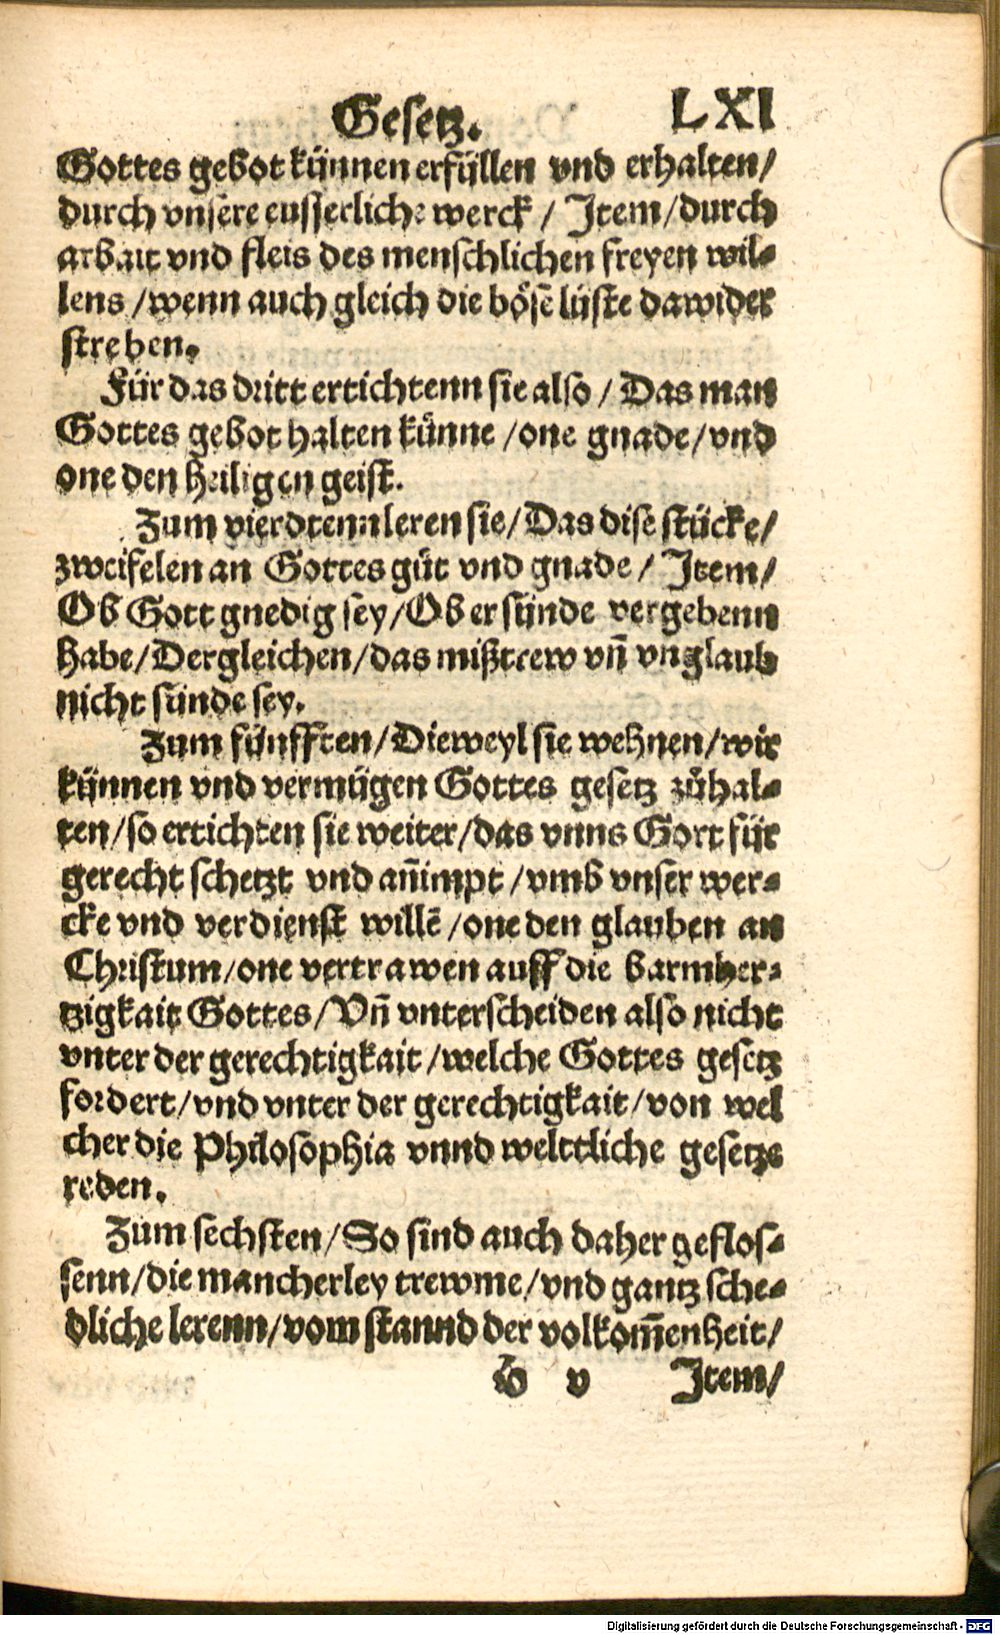 Gesetz. LXI
Gottes gebot künnen erfüllen vnd erhalten/
durch vnsere eusserliche werck / Item/durch
arbait vnd fleis des menschlichen freyen wil-
lens /wenn auch gleich die böse lüste dawider
streben.
Für das dritt ertichtenn sie also / Das man
Gottes gebot halten künne /one gnade/vnd
one den heiligen geist.
Zum vierdtenn leren sie/Das dise stücke/
zweifelen an Gottes güt vnd gnade/ Item/
Ob Gott gnedig sey/Ob er sünde vergebenn
habe/Dergleichen/das mißtrew vn̄ vnglaub
nicht sünde sey.
Zum fünfften/Dieweyl sie wehnen/wir
künnen vnd vermügen Gottes gesetz zůhal-
ten/so ertichten sie weiter/das vnns Gott für
gerecht schetzt vnd an̄impt /vmb vnser wer-
cke vnd verdienst willē /one den glauben an
Christum/one vertrawen auff die barmher-
tzigkait Gottes/Vn̄ vnterscheiden also nicht
vnter der gerechtigkait /welche Gottes gesetz
fordert/vnd vnter der gerechtigkait/von wel
cher die Philosophia vnnd welttliche gesetze
reden.
Zum sechsten/So sind auch daher geflos-
senn/die mancherley trewme/vnd gantz sche-
dliche lerenn/vom stannd der volkom̄enheit/
v Item/
Digitalisierung gefördert durch die Deutsche Forschungsgemeinschaft - DFG